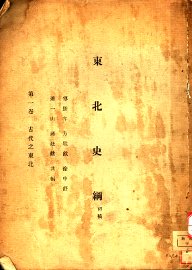 東北史綱
初稿
傅斯年 方壯猷 徐中舒
蕭一山 蔣廷黻 共編
第一卷 古代之東北